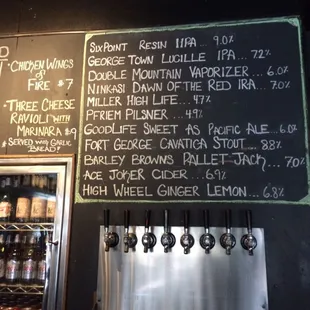 Chicken Wings
of
Fire $7
Three Cheese
Ravioli with
Marinara $9
Served with Garlic
Bread
SixPoint Resin IIPA ... 9.0%
George Town Lucille IPA ... 7.2%
Double Mountain Vaporizer ... 6.0%
Ninkasi Dawn of the Red IRA ... 7.0%
Miller High Life ... 4.7%
Pfriem Pilsner ... 4.9%
GoodLife Sweet As Pacific Ale ... 6.0%
Fort George Cavatica Stout ... 8.8%
Barley Browns Pallet Jack ... 7.0%
Ace Joker Cider ... 6.9%
High Wheel Ginger Lemon ... 6.8%